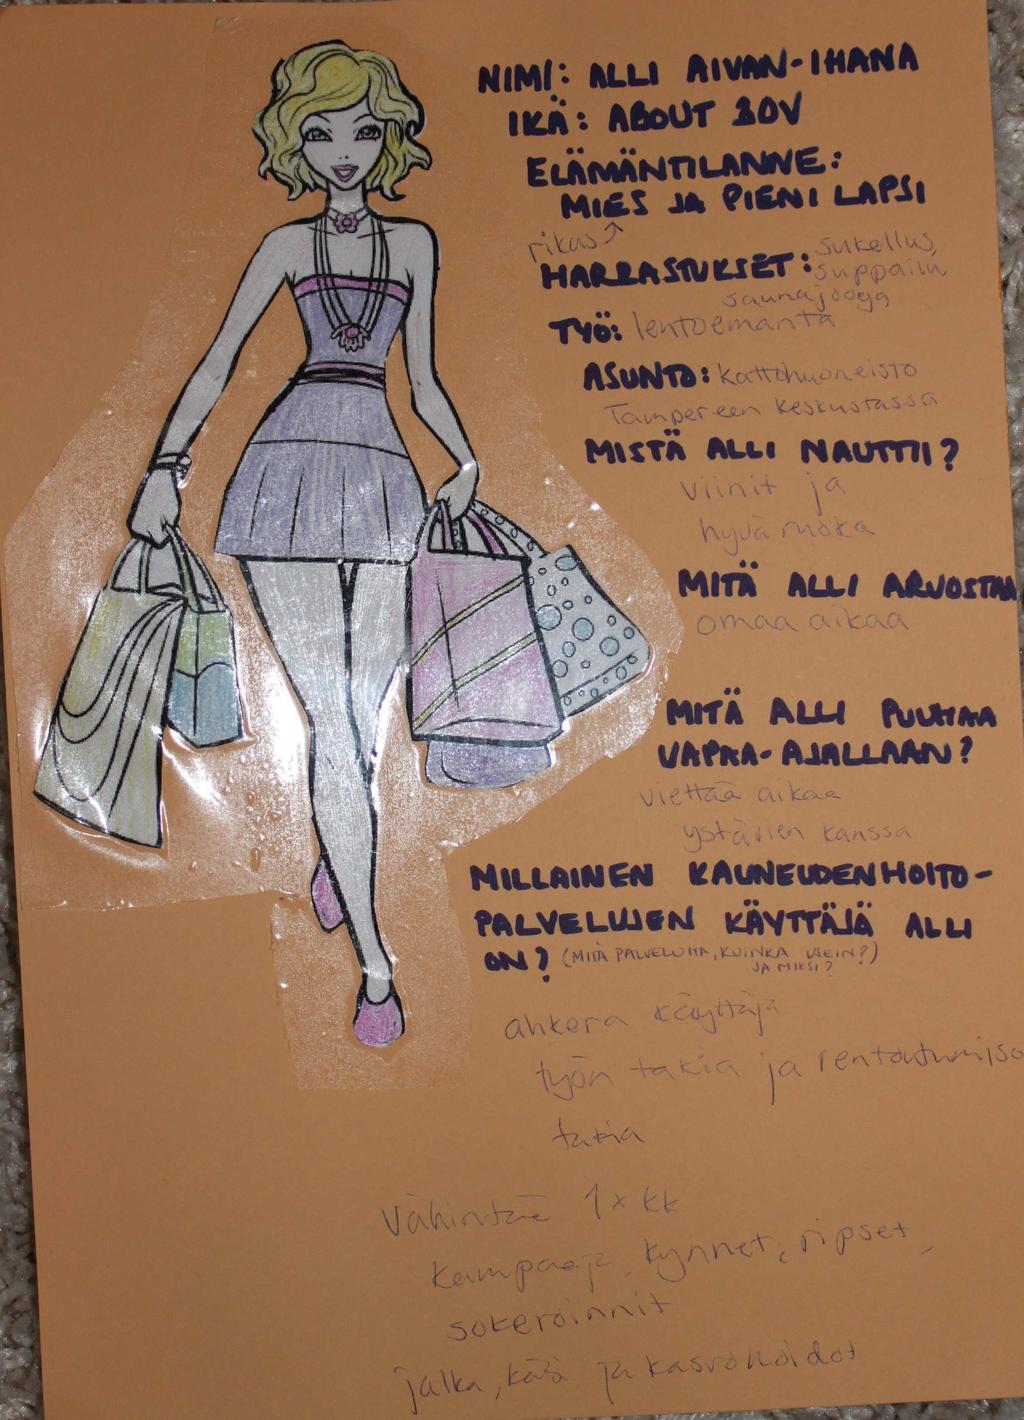 NIMI: ALLI AIVAN-IHANA
IKÄ: ABOUT 30V
ELÄMÄNTILANNE:
MIES JA PIENI LAPSI
rikas
HARRASTUKSET: sukellus,
suppailu
saunajooga
TYÖ: lentoemanta
ASUNTO: Kattohuoneisto
Tampereen keskustassa
MISTÄ ALLI NAUTTII?
viinit ja
hyvä ruoka
MITÄ ALLI ARVOSTAA
omaa aikaa
MITÄ ALLI PUUHAA
VAPAA-AJALLAAN?
viettää aikaa
ystävien kanssa
MILLAINEN KAUNEUDENHOITO-
PALVELUJEN KÄYTTÄJÄ ALLI
ON? (MITÄ PALVELUITA, KUINKA USEIN?)
JA MIKSI?
ahkera käyttäjä
työn takia ja rentoutumisen
takia
Vähintää 1x kk
kampaaja, kynnet, ripset,
sokeroinnit
jalka, käsi ja kasvohoidot